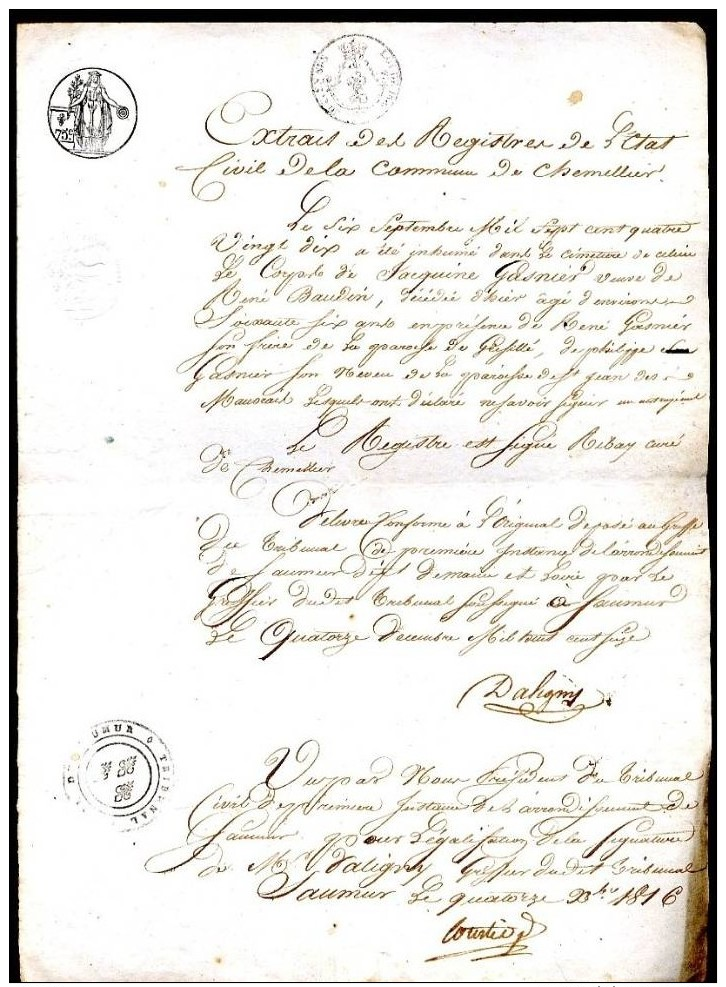 75c
Extrait des Registres de L'Etat
Civil de la Commune de Chemellier.
Le Six Septembre Mil Sept cent quatre
Vingt dix a été inhumé dans le Cimetiere de
Le Corps de Jacquine Gasnier veuve de
René Baudin, décédée d'hier agé d'environs
Soixante six ans en présence de René Gasnier
son frère de La paroisse de Grésillé, de philippe
Gasnier Son Neveu de La paroisse de St jean des
Mauvrais Lesquels ont déclaré ne savoir signer
Le Registre est signé Ribay curé
De Chemellier
Délivré Conforme à L'original déposé au Greffe
Du Tribunal de première Instance de L'arrondissement
De Saumur Dépt De maine et Loire par Le
Greffier dudit Tribunal soussigné a Saumur
Le Quatorze Decembre Mil huit cent seize
Daligny
Vu par Nous Président du Tribunal
Civil de premiere instance de L'arrondissement de
Saumur pour Légalisation de la Signature
de Mr Daligny Greffier dudit Tribunal
Saumur Le quatorze Xbre 1816
UMUR
TRIBUNAL